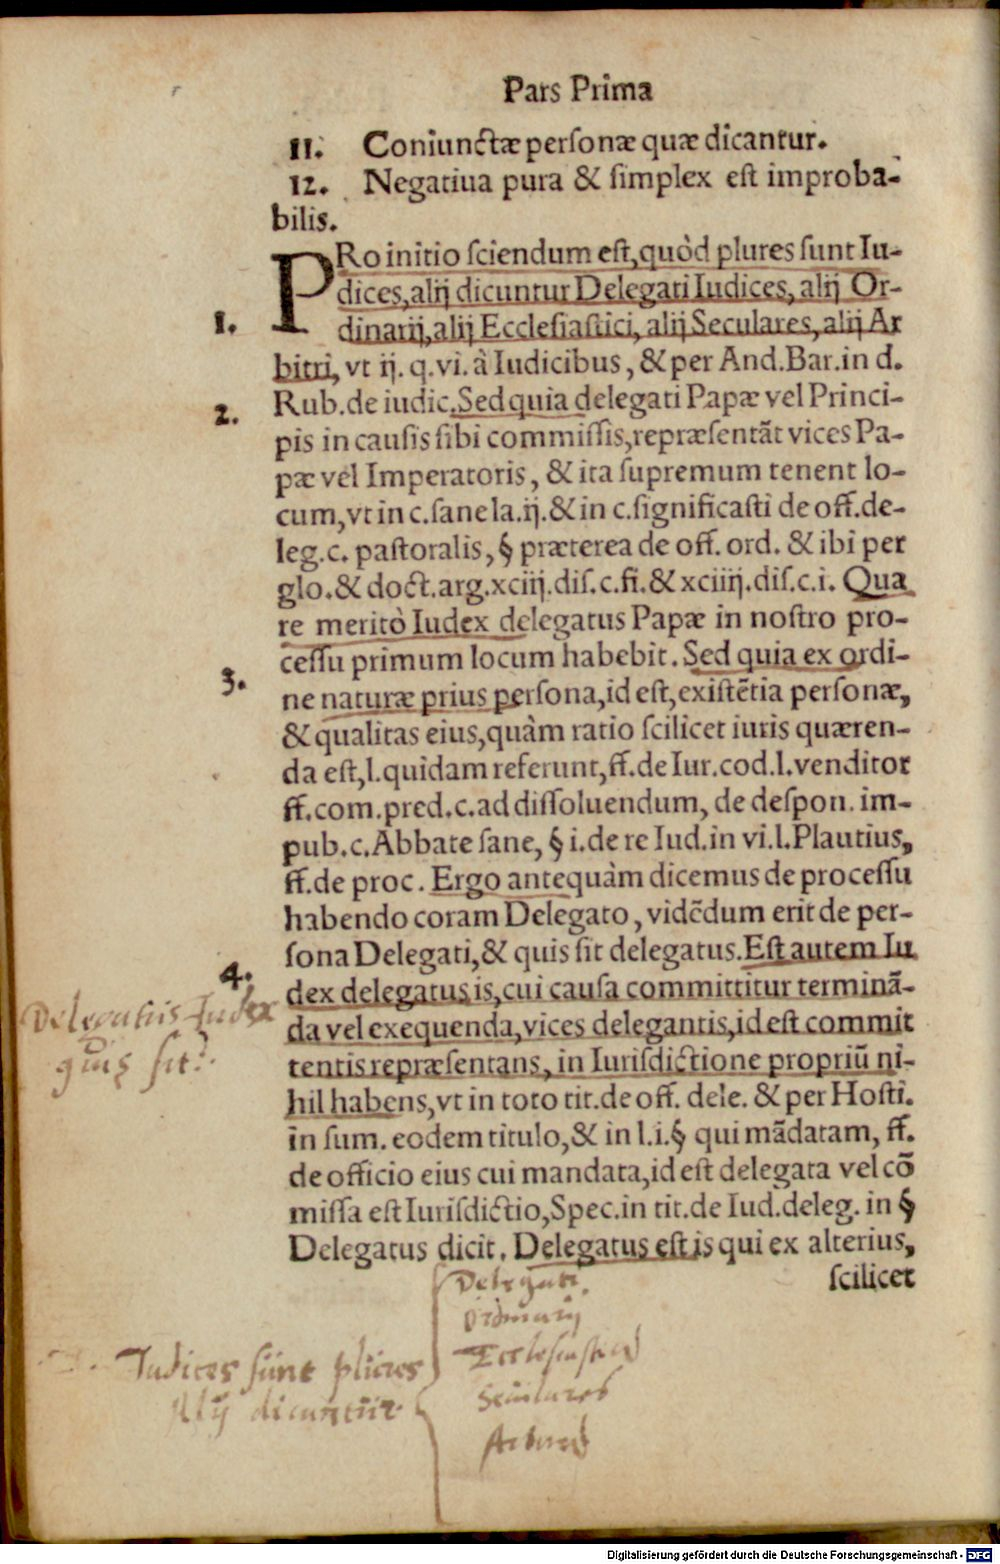 Pars Prima
11. Coniunctæ personæ quæ dicantur.
12. Negatiua pura & simplex est improba-
bilis.
PRo initio sciendum est, quòd plures sunt Iu-
dices, alij dicuntur Delegati Iudices, alij Or-
1. dinarij, alij Ecclesiastici, alij Seculares, alij Ar
bitri, vt ij. q. vi. à Iudicibus, & per And. Bar. in d.
2. Rub. de iudic. Sed quia delegati Papæ vel Princi-
pis in causis sibi commissis, repræsentãt vices Pa-
pæ vel Imperatoris, & ita supremum tenent lo-
cum, vt in c. sane la. ij. & in c. significasti de off. de-
leg. c. pastoralis, § præterea de off. ord. & ibi per
glo. & doct. arg. xciij. dis. c. fi. & xciiij. dis. c. i. Qua
re meritò Iudex delegatus Papæ in nostro pro-
cessu primum locum habebit. Sed quia ex ordi-
3. ne naturæ prius persona, id est, existẽtia personæ,
& qualitas eius, quàm ratio scilicet iuris quæren-
da est, l. quidam referunt, ff. de Iur. cod. l. venditor
ff. com. pred. c. ad dissoluendum, de despon. im-
pub. c. Abbate sane, § i. de re Iud. in vi. l. Plautius,
ff. de proc. Ergo antequàm dicemus de processu
habendo coram Delegato, vidẽdum erit de per-
sona Delegati, & quis sit delegatus. Est autem Iu
4. dex delegatus is, cui causa committitur terminã-
Delegatus Iudex
quis sit?
da vel exequenda, vices delegantis, id est commit
tentis repræsentans, in Iurisdictione propriũ ni-
hil habens, vt in toto tit. de off. dele. & per Hosti.
in sum. eodem titulo, & in l. i. § qui mãdatam, ff.
de officio eius cui mandata, id est delegata vel cõ
missa est Iurisdictio, Spec. in tit. de Iud. deleg. in §
Delegatus dicit. Delegatus est is qui ex alterius,
scilicet
Iudices sunt plures
Alij dicuntur
Delegati.
Ordinarij
Ecclesiastici
Seculares
Arbitri
Digitalisierung gefördert durch die Deutsche Forschungsgemeinschaft - DFG